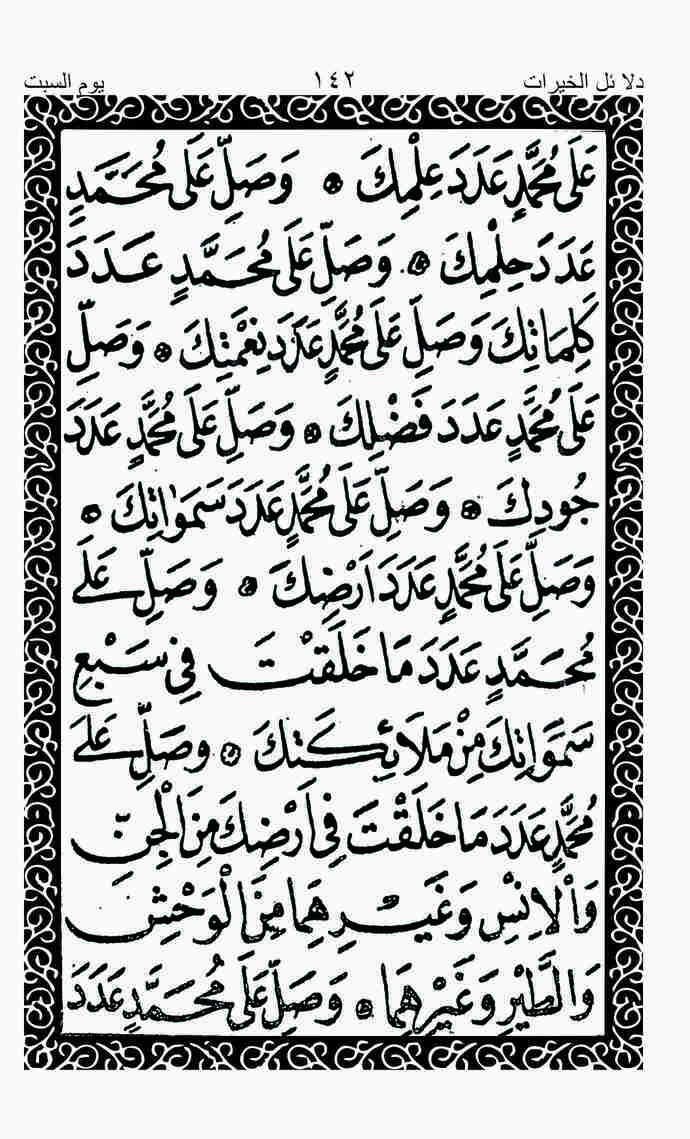 دلائل الخيرات ١٤٢ يوم السبت
عَلَى مُحَمَّدٍ عَدَدَ عِلْمِكَ ۞ وَصَلِّ عَلَى مُحَمَّدٍ
عَدَدَ حِلْمِكَ ۞ وَصَلِّ عَلَى مُحَمَّدٍ عَدَدَ
كَلِمَاتِكَ وَصَلِّ عَلَى مُحَمَّدٍ عَدَدَ نِعْمَتِكَ ۞ وَصَلِّ
عَلَى مُحَمَّدٍ عَدَدَ فَضْلِكَ ۞ وَصَلِّ عَلَى مُحَمَّدٍ عَدَدَ
جُودِكَ ۞ وَصَلِّ عَلَى مُحَمَّدٍ عَدَدَ سَمَوٰاتِكَ ۞
وَصَلِّ عَلَى مُحَمَّدٍ عَدَدَ اَرْضِكَ ۞ وَصَلِّ عَلَى
مُحَمَّدٍ عَدَدَ مَا خَلَقْتَ فِي سَبْعِ
سَمَوَاتِكَ مِنْ مَلَائِكَتِكَ ۞ وَصَلِّ عَلَى
مُحَمَّدٍ عَدَدَ مَا خَلَقْتَ فِي اَرْضِكَ مِنَ الْجِنِّ
وَالْاِنْسِ وَغَيْرِهِمَا مِنَ الْوَحْشِ
وَالطَّيْرِ وَغَيْرِهِمَا ۞ وَصَلِّ عَلَى مُحَمَّدٍ عَدَدَ